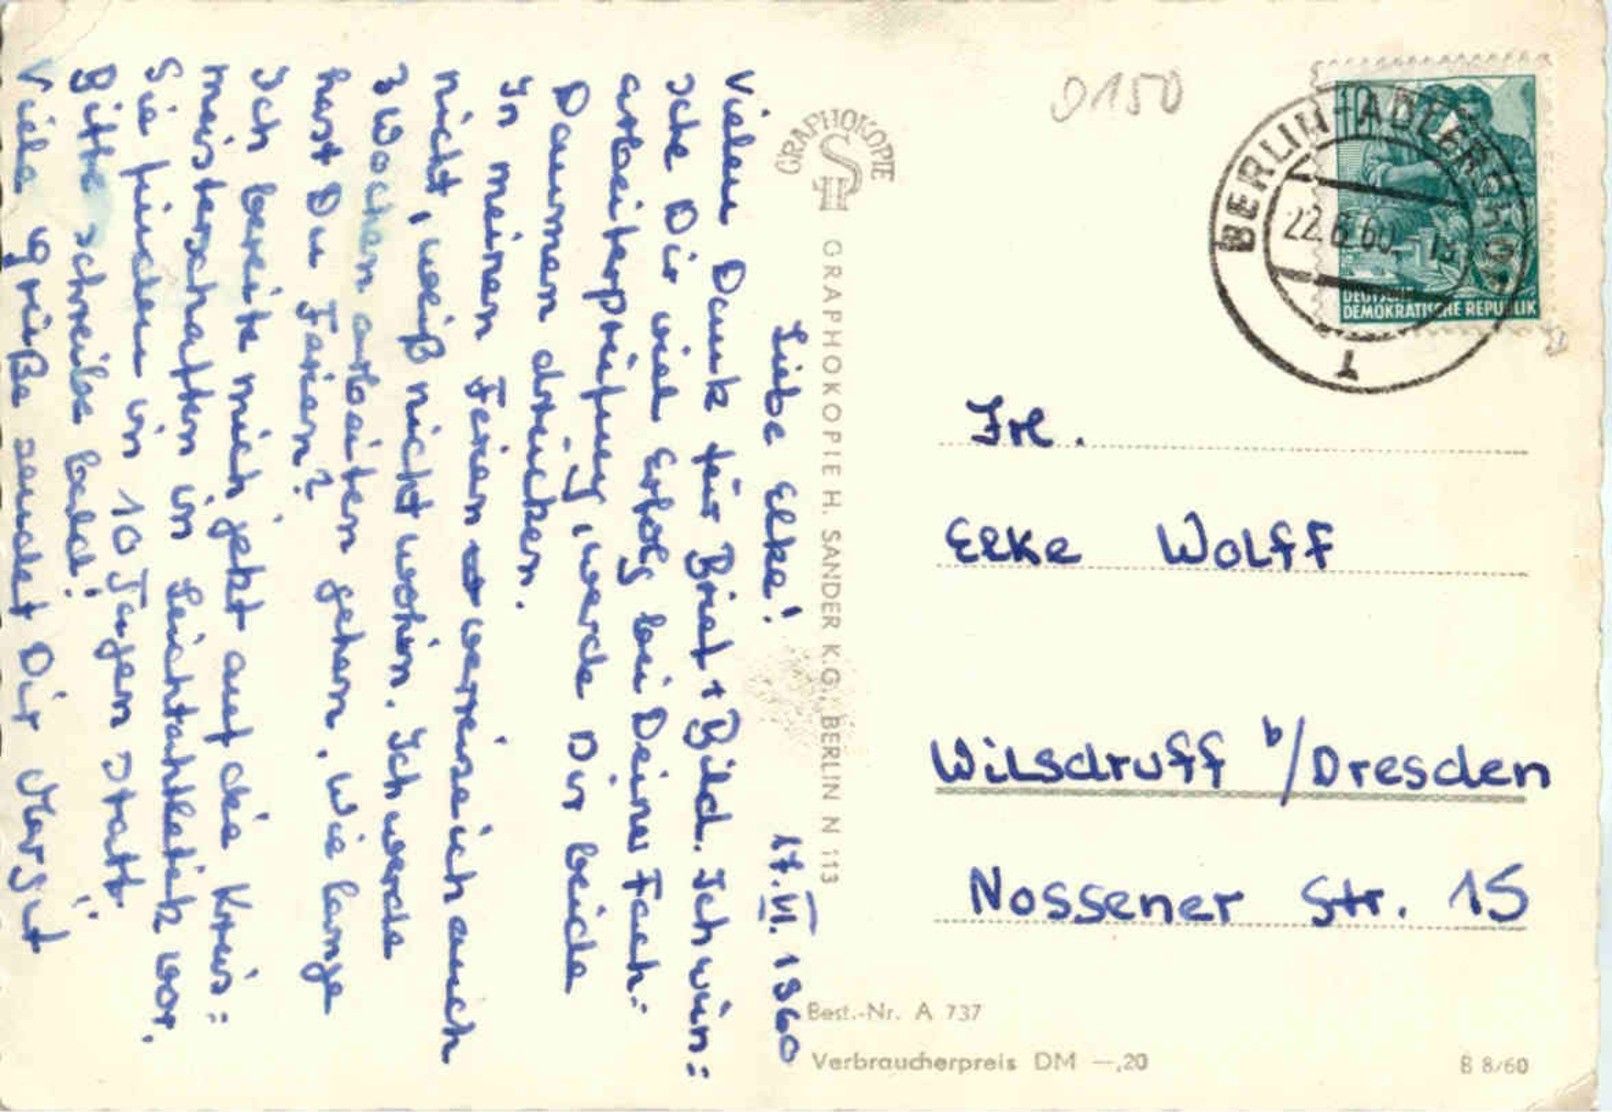 17.VI.1960
Liebe Elke!
Vielen Dank für Brief + Bild. Ich wün=
sche Dir viel Erfolg bei Deiner Fach-
arbeiterprüfung, werde Dir beide
Daumen drücken.
In meinen Ferien verreise ich auch
nicht, weiß nicht wohin. Ich werde
3 Wochen arbeiten gehen. Wie lange
hast Du Ferien?
Ich bereite mich jetzt auf die Kreis=
meisterschaften in Leichtathletik vor.
Sie finden in 10 Tagen statt.
Bitte schreibe bald!
Viele Grüße sendet Dir Margit
GRAPHOKOPIE
GRAPHOKOPIE H. SANDER K.G., BERLIN N 113
0150
BERLIN-ADLERSHOF
22.6.60
DEUTSCHE
DEMOKRATISCHE REPUBLIK
Frl.
Elke Wolff
Wilsdruff b/Dresden
Nossener Str. 15
Best.-Nr. A 737
Verbraucherpreis DM —,20
B 8/60